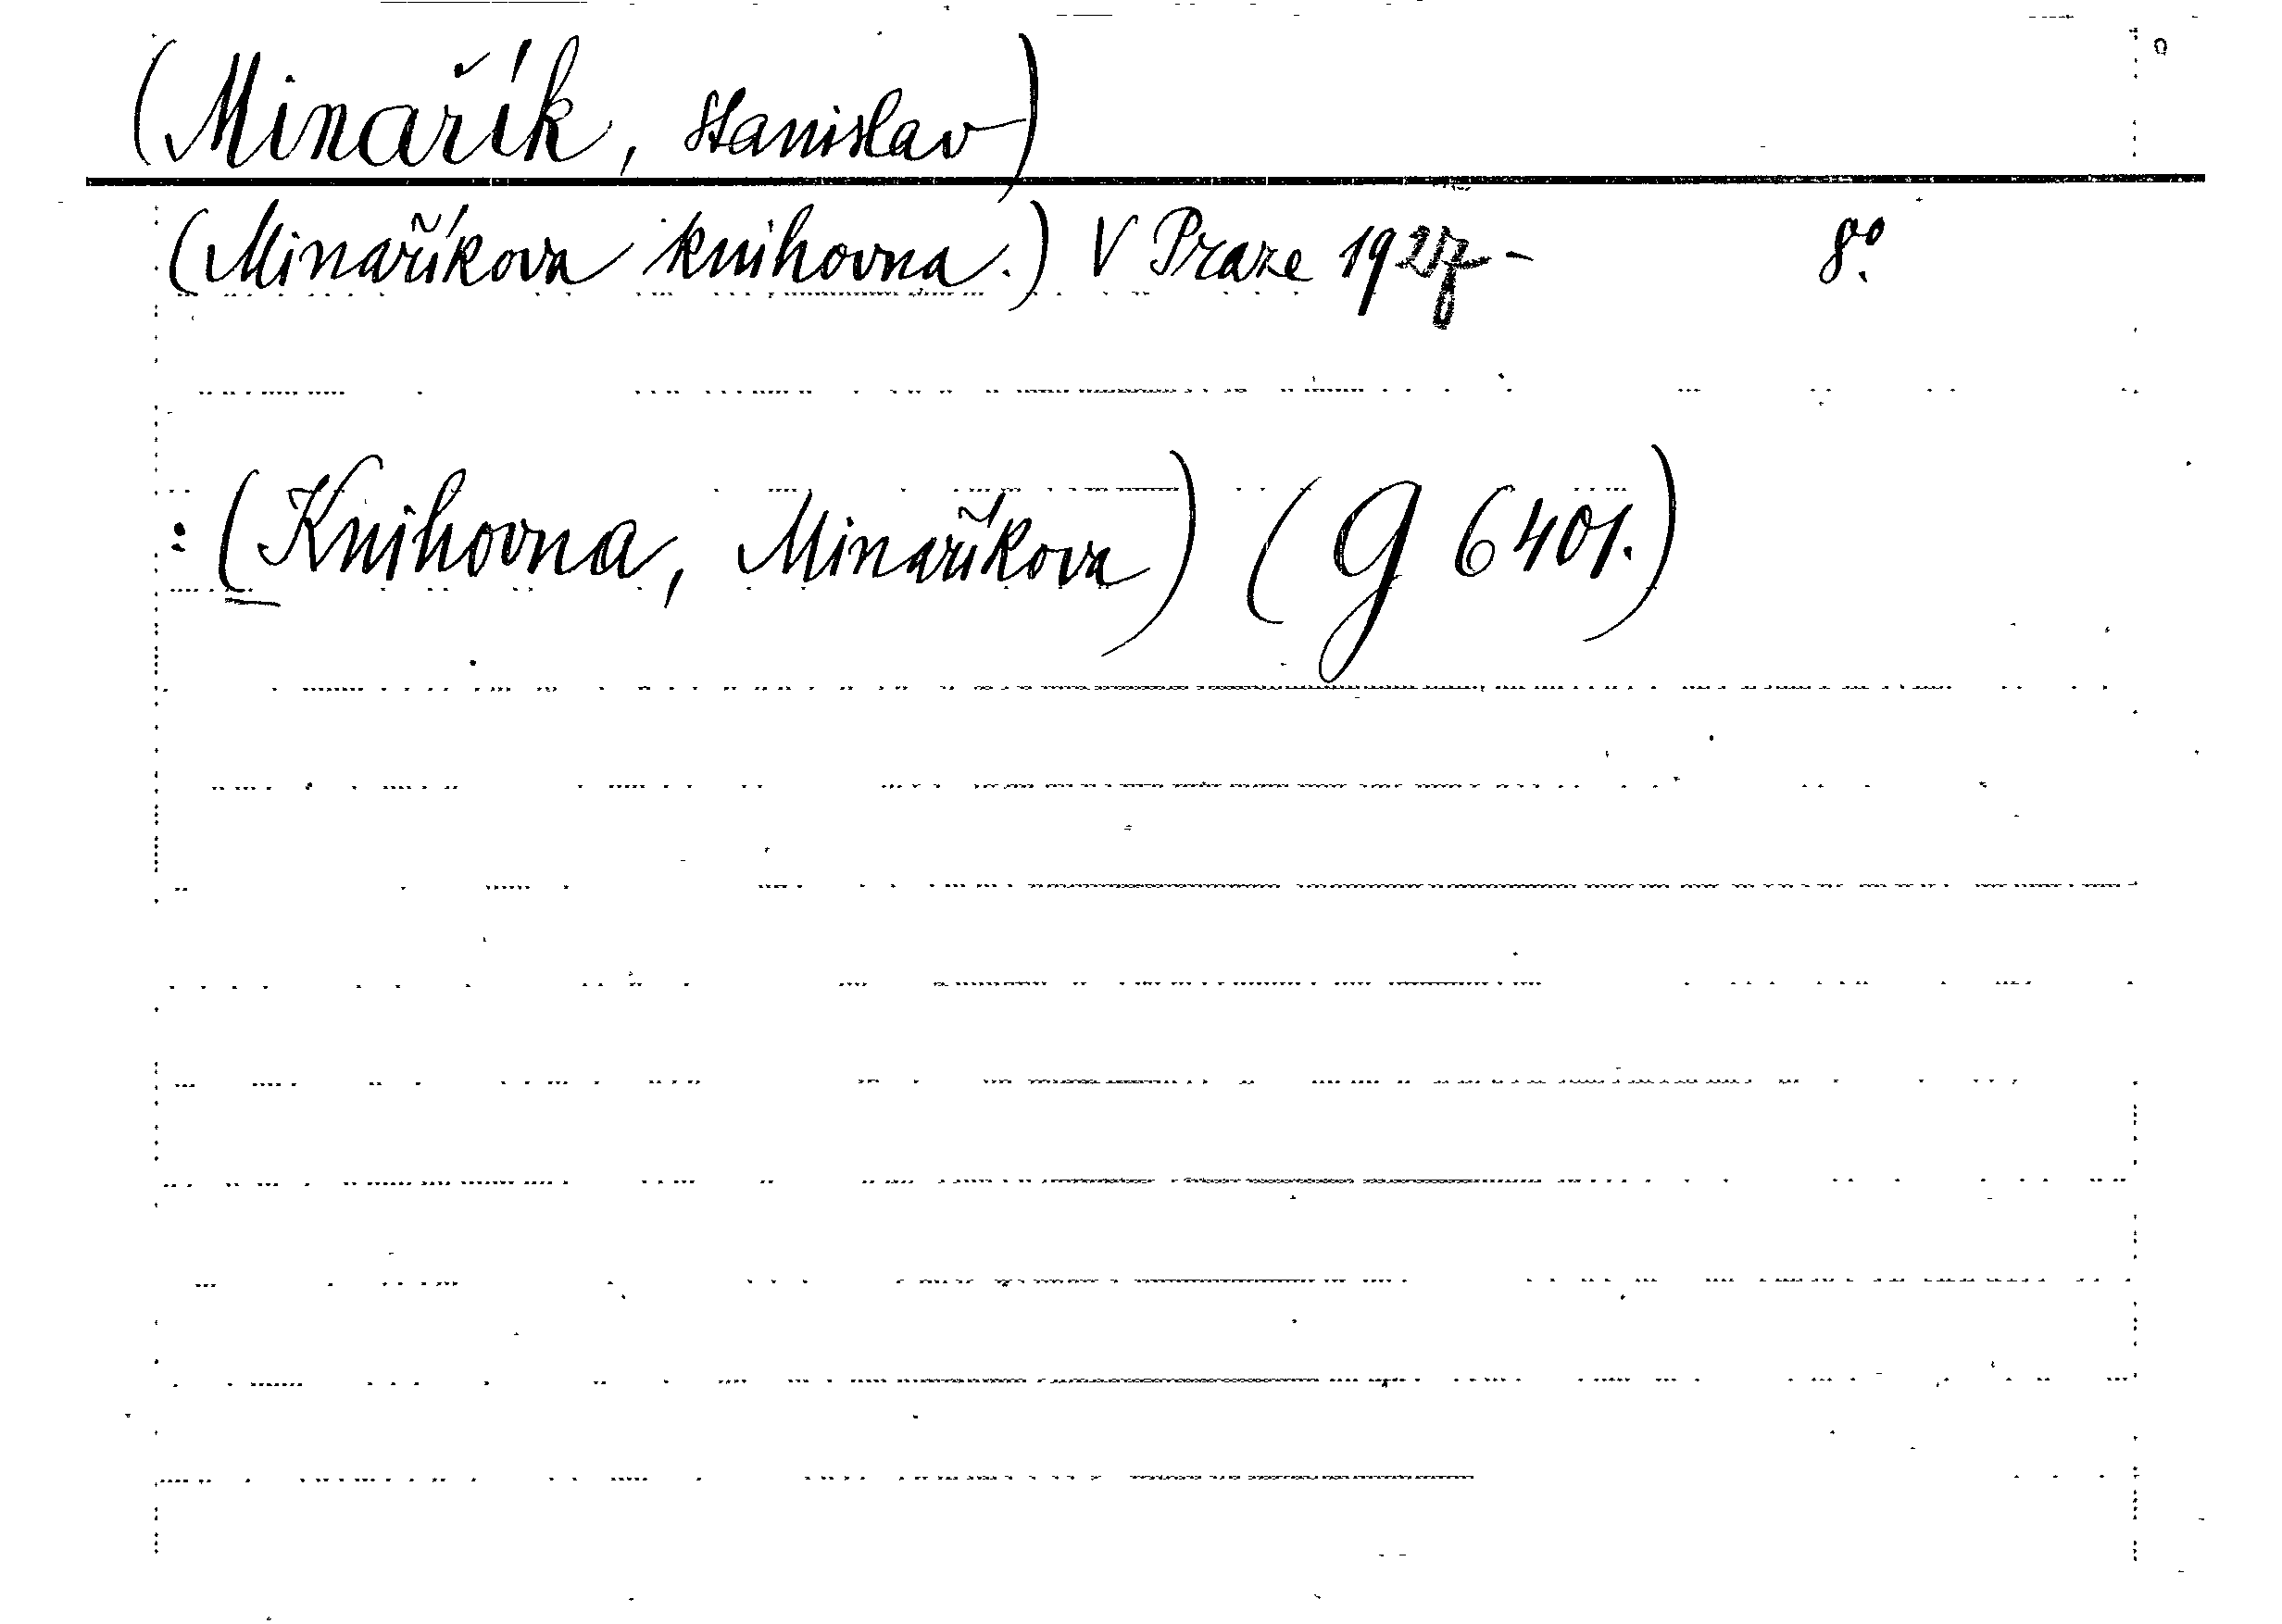 (Minařík, Stanislav)
(Minaříkova knihovna.) V Praze 1927- 8°.
: (Knihovna, Minaříkova) (G 6401.)